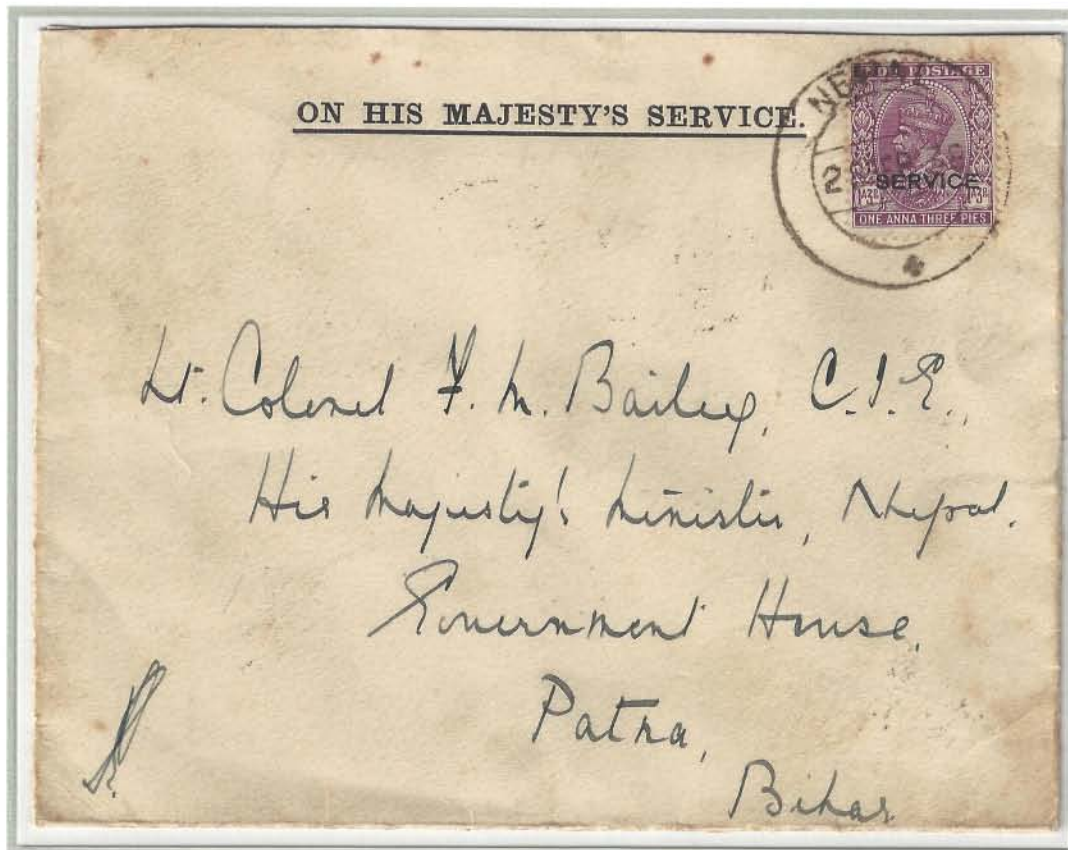 ON HIS MAJESTY'S SERVICE.
NEPAL
POSTAGE
SERVICE
1A3P 1A3P
ONE ANNA THREE PIES
Lt. Colonel F. M. Bailey, C.I.E.,
His Majesty's Minister, Nepal.
Government House,
Patna,
Bihar